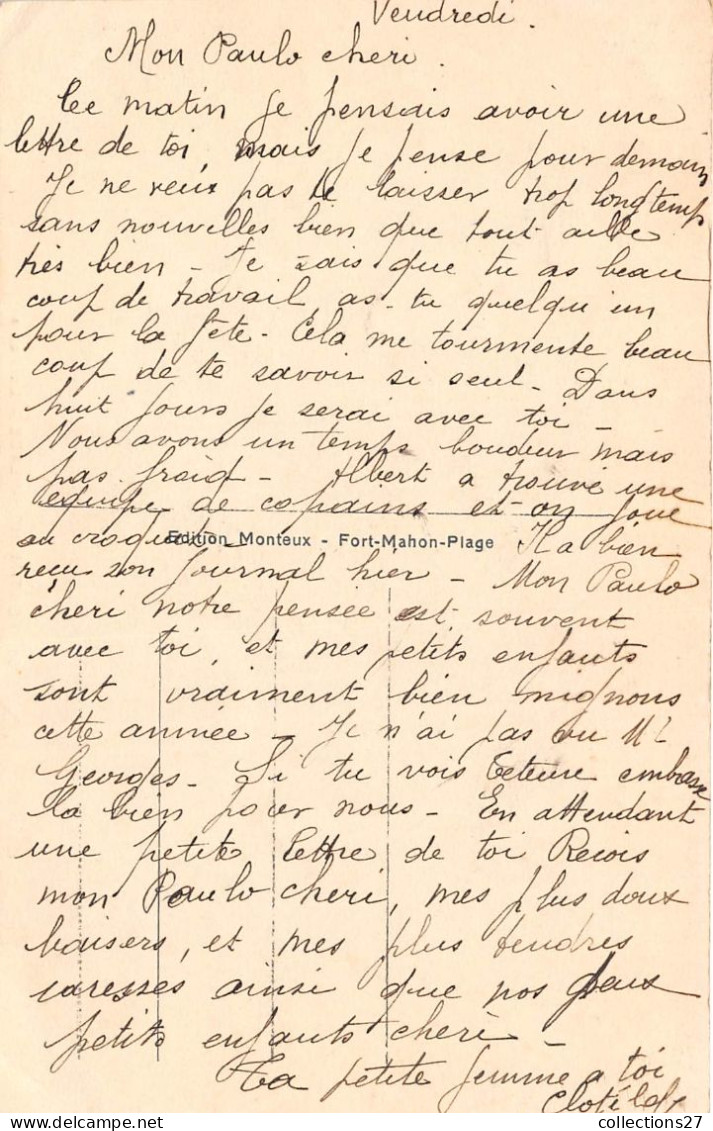 Vendredi.
Mon Paulo cheri.
Ce matin je pensais avoir une
lettre de toi, mais je pense pour demain
Je ne veux pas te laisser trop longtemps
sans nouvelles bien que tout aille
très bien - Je sais que tu as beau
coup de travail as-tu quelqu'un
pour la fête - Cela me tourmente beau
coup de te savoir si seul - Dans
huit jours je serai avec toi -
Nous avons un temps boudeur mais
pas froid - Albert a trouvé une
équipe de copains et on joue
au croquet - Il a bien
Edition Monteux - Fort-Mahon-Plage
reçu son journal hier - Mon Paulo
cheri notre pensée est souvent
avec toi, et mes petits enfants
sont vraiment bien mignons
cette année - Je n'ai pas vu Mr
Georges - Si tu vois embrasse
la bien pour nous - En attendant
une petite lettre de toi Recois
mon Paulo cheri, mes plus doux
baisers, et mes plus tendres
caresses ainsi que nos deux
petits enfants cheri -
Ta petite femme a toi
Clotilde
collections27